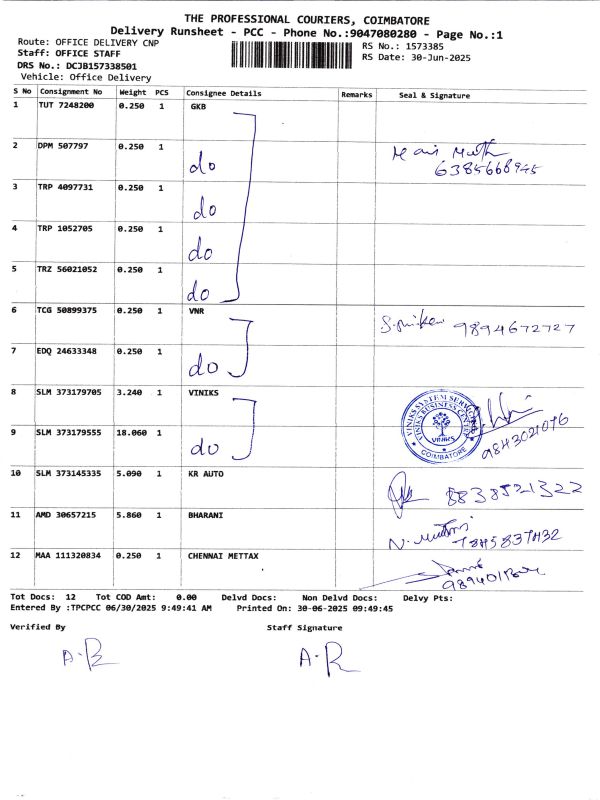 THE PROFESSIONAL COURIERS, COIMBATORE
Delivery Runsheet - PCC - Phone No.:9047080280 - Page No.:1
Route: OFFICE DELIVERY CNP
RS No.: 1573385
Staff: OFFICE STAFF
RS Date: 30-Jun-2025
DRS No.: DCJB157338501
Vehicle: Office Delivery
S No Consignment No Weight PCS Consignee Details Remarks Seal & Signature
1 TUT 7248200 0.250 1 GKB
2 DPM 507797 0.250 1 do
6385668945
3 TRP 4097731 0.250 1 do
4 TRP 1052705 0.250 1 do
5 TRZ 56021052 0.250 1 do
6 TCG 50899375 0.250 1 VNR 9894672727
7 EDQ 24633348 0.250 1 do
8 SLM 373179705 3.240 1 VINIKS
VINIKS SYSTEM SERVICES
VINIKS BUSINESS CENTRE
VINIKS
COIMBATORE
9843021076
9 SLM 373179555 18.060 1 do
10 SLM 373145335 5.090 1 KR AUTO 8838521322
11 AMD 30657215 5.860 1 BHARANI
7845837432
12 MAA 111320834 0.250 1 CHENNAI METTAX
Tot Docs: 12 Tot COD Amt: 0.00 Delvd Docs: Non Delvd Docs: Delvy Pts:
Entered By :TPCPCC 06/30/2025 9:49:41 AM Printed On: 30-06-2025 09:49:45
Verified By Staff Signature
A·R A·R